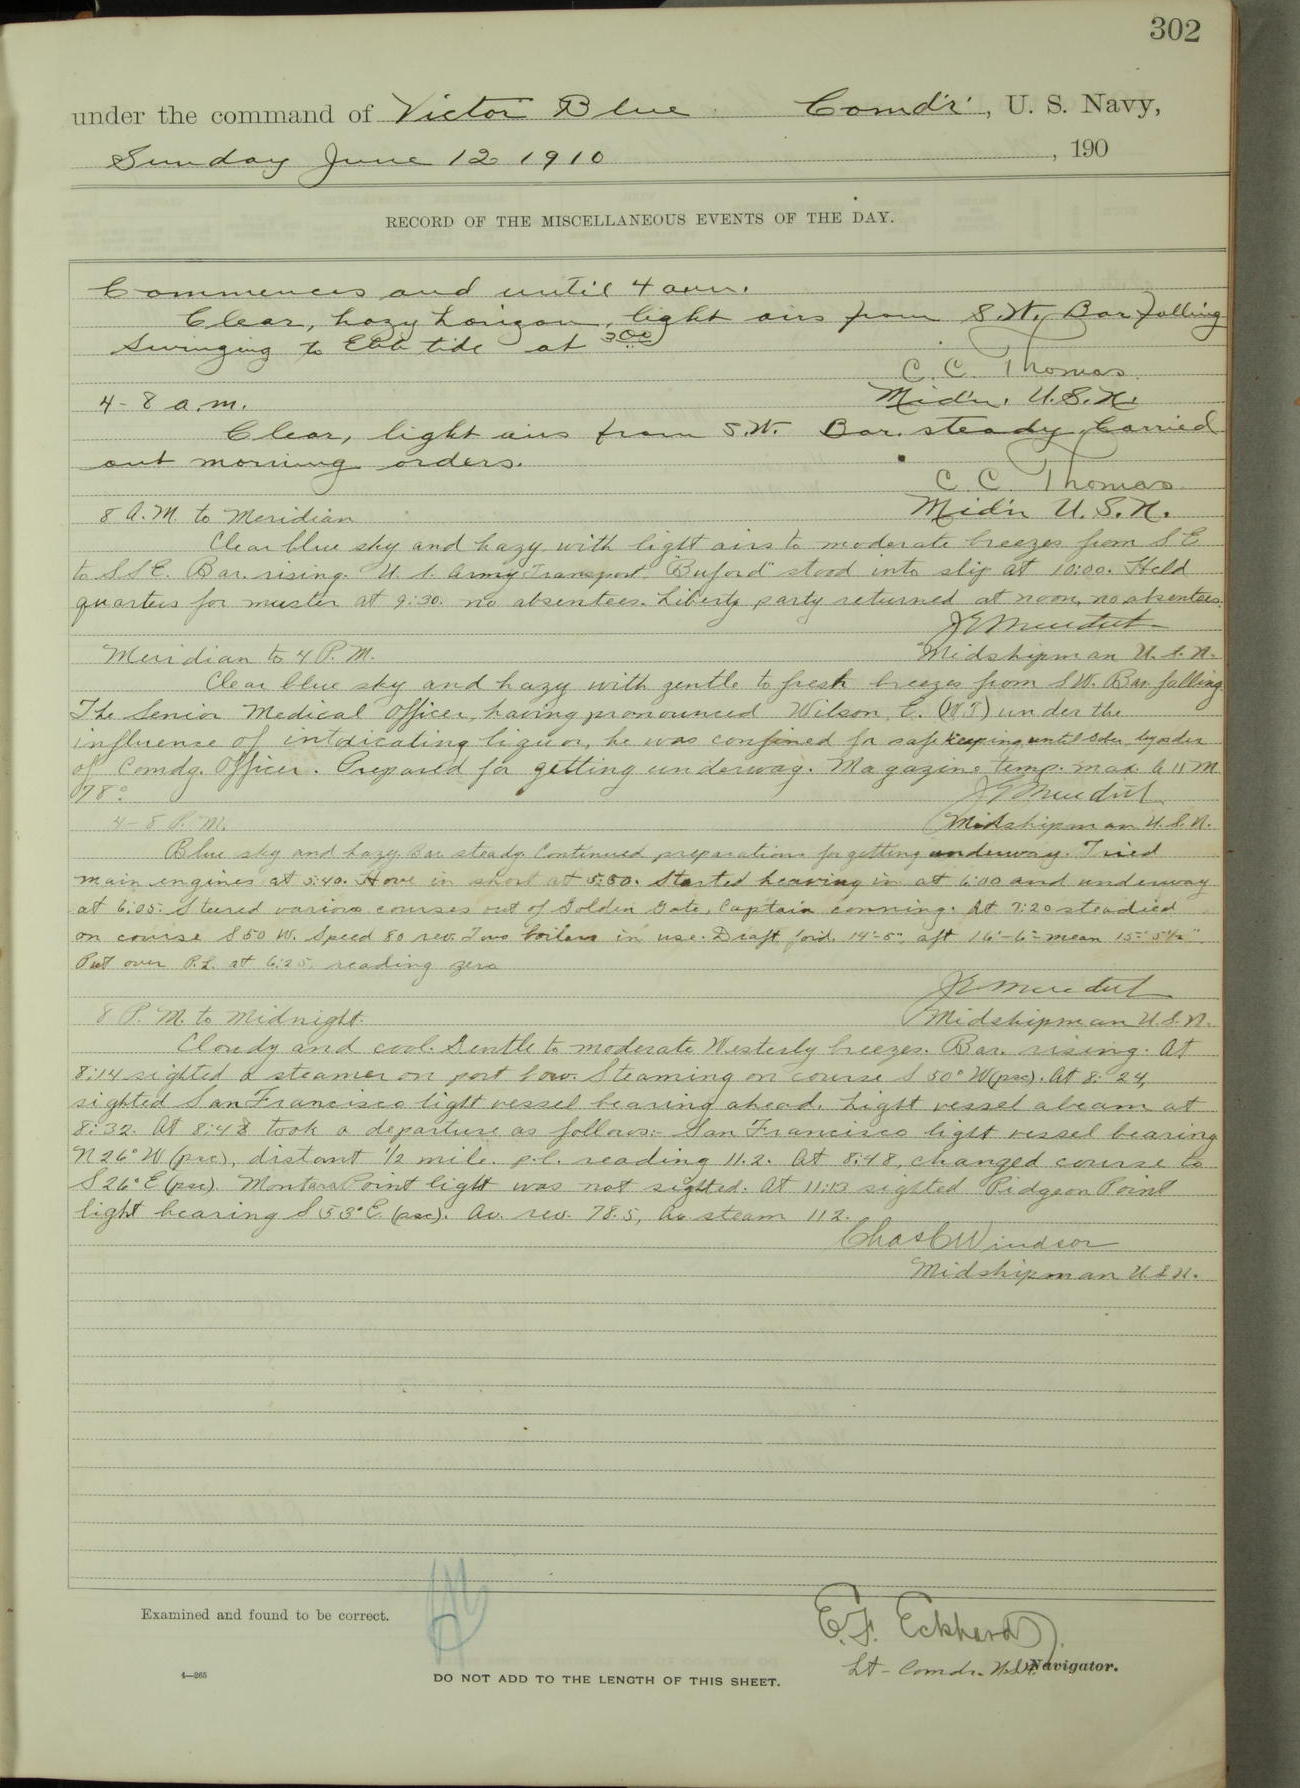 302
under the command of Victor Blue Comd'r, U. S. Navy,
Sunday June 12 1910, 190
RECORD OF THE MISCELLANEOUS EVENTS OF THE DAY.
Commences and until 4 a.m.
Clear, hazy horizon, light airs from S.W., Bar falling
Swinging to Ebb tide at 3:00
C. C. Thomas
Mid'n. U.S.N.
4-8 a.m.
Clear, light airs from S.W. Bar. steady. Carried
out morning orders.
C. C. Thomas
Mid'n U.S.N.
8 A.M. to Meridian
Clear blue sky and hazy with light airs to moderate breezes from S E
to S S E. Bar. rising. U. S. Army Transport "Buford" stood into slip at 10:00. Held
quarters for muster at 9:30. no absentees. Liberty party returned at noon, no absentees.
J E Meredith
Midshipman U.S.N.
Meridian to 4 P.M.
Clear blue sky and hazy with gentle to fresh breezes from S W. Bar. falling
The Senior Medical Officer, having pronounced Wilson, C. (W.T.) under the
influence of intoxicating liquor, he was confined for safe keeping until sober by order
of Comdg. Officer. Prepared for getting underway. Magazine temp. max. A 11 M
78°
J E Meredith
Midshipman U.S.N.
4-8 P. M.
Blue sky and hazy. Bar steady. Continued preparations for getting underway. Tried
main engines at 5:40. Hove in short at 5:50. Started heaving in at 6:00 and underway
at 6:05. Steered various courses out of Golden Gate, Captain conning. At 7:20 steadied
on course S 50 W. Speed 80 rev. Two boilers in use. Draft for'd. 14'-5", aft 16'-6" mean 15'-5½".
Put over P.L. at 6:25, reading zero
J E Meredith
Midshipman U.S.N.
8 P. M. to Midnight.
Cloudy and cool. Gentle to moderate Westerly breezes. Bar. rising. At
8:14 sighted a steamer on port bow. Steaming on course S 50° W (psc). At 8:24,
sighted San Francisco light vessel bearing ahead. Light vessel abeam at
8:32. At 8:48 took a departure as follows:- San Francisco light vessel bearing
N 26° W (psc), distant ½ mile. p.l. reading 11.2. At 8:48, changed course to
S 26° E (psc). Montara Point light was not sighted. At 11:13 sighted Pidgeon Point
light bearing S 53° E (psc). Av. rev. 78.5, Av. steam 112.
Chas C Windsor
Midshipman U.S.N.
Examined and found to be correct.
E. F. Eckhardt
Lt-Comdr. U.S.N. Navigator.
4—265
DO NOT ADD TO THE LENGTH OF THIS SHEET.